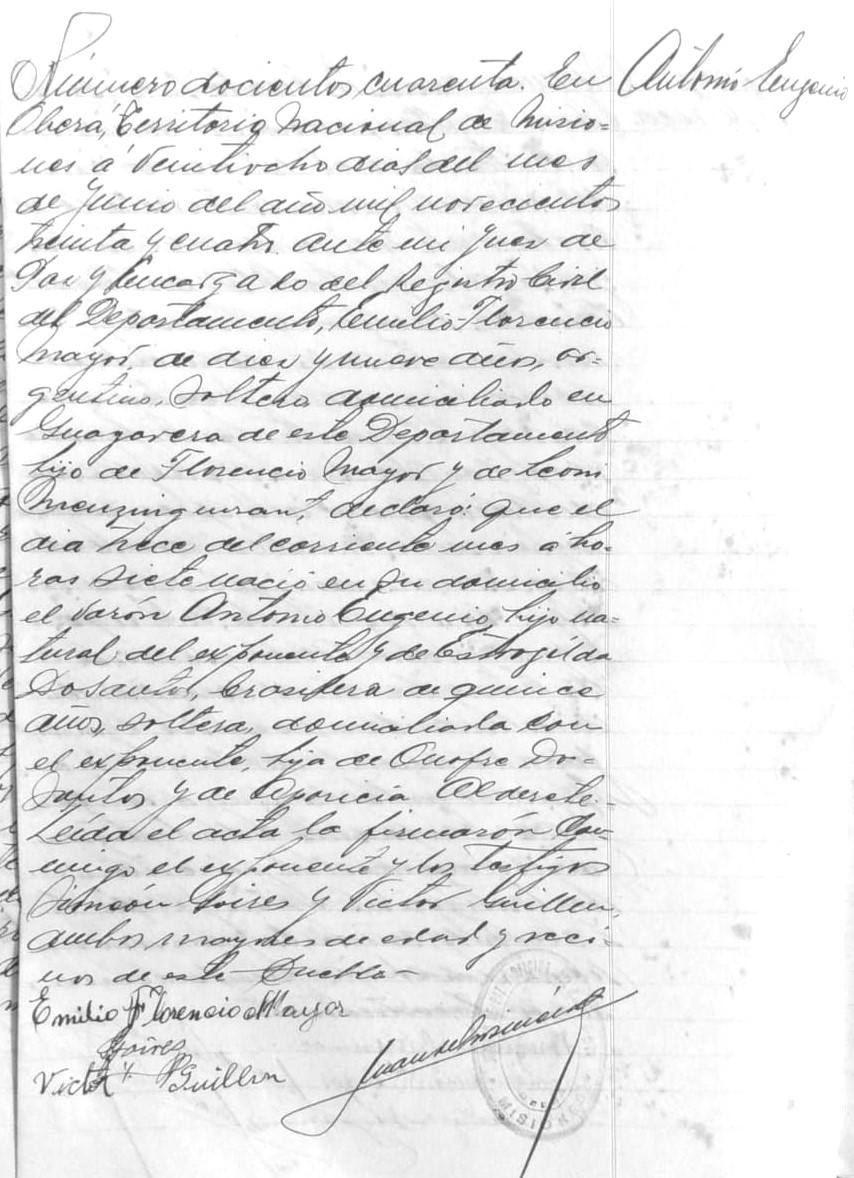 Número docientos cuarenta. En
Antonio Eugenio
Oberá, Territorio Nacional de Misio=
nes á veintiocho dias del mes
de Junio del año mil novecientos
treinta y cuatro ante mi Juez de
Paz y Encargado del Registro Civil
del Departamento, Emilio Florencio
Mayor, de diez y nueve años, ar=
gentino, soltero domiciliado en
de este Departamento
hijo de Florencio Mayor y de Leoni
declaró: que el
dia trece del corriente mes á ho-
ras siete nació en su domicilio
el varón Antonio Eugenio, hijo na=
tural del exponente y de
Dosantos, brasilera de quince
años, soltera, domiciliada con
el exponente, hija de Onofre Do-
Santos y de Aparicia Alderete.
Leída el acta la firmarón con
migo el exponente y los testigos
Simeón Soires y Victor Guillen,
ambos mayores de edad y veci-
nos de este Pueblo-
Emilio Florencio Mayor
Soires
Victor Guillen
MISIONES